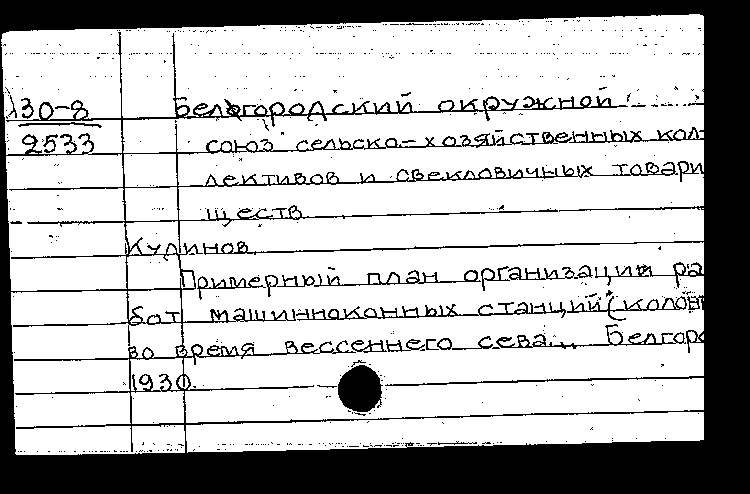 30-8
2533
Белгородский окружной
союз сельско-хозяйственных кол-
лективов и свекловичных товари
ществ
Кулинов.
Примерный план организации ра
бот машинноконных станций (колон
во время вессеннего сева... Белгоро
1930.